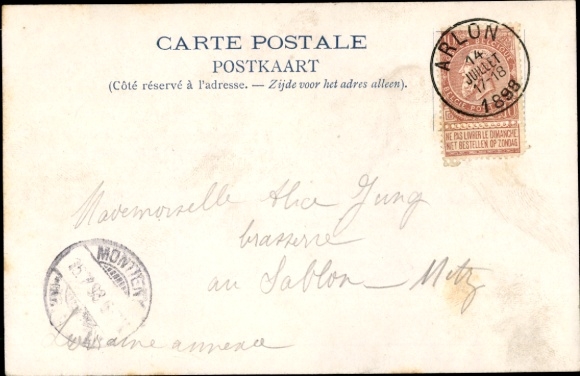 CARTE POSTALE
POSTKAART
(Côté réservé à l'adresse. — Zijde voor het adres alleen).
ARLON
14
JUILLET
17-18
1898
NE PAS LIVRER LE DIMANCHE
NIET BESTELLEN OP ZONDAG
Mademoiselle Alice Jung
brasserie
au Sablon - Metz
Lorraine annexée
MONTIGN